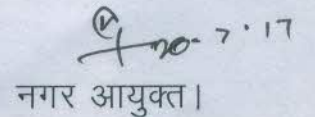 20-7-17
नगर आयुक्त।